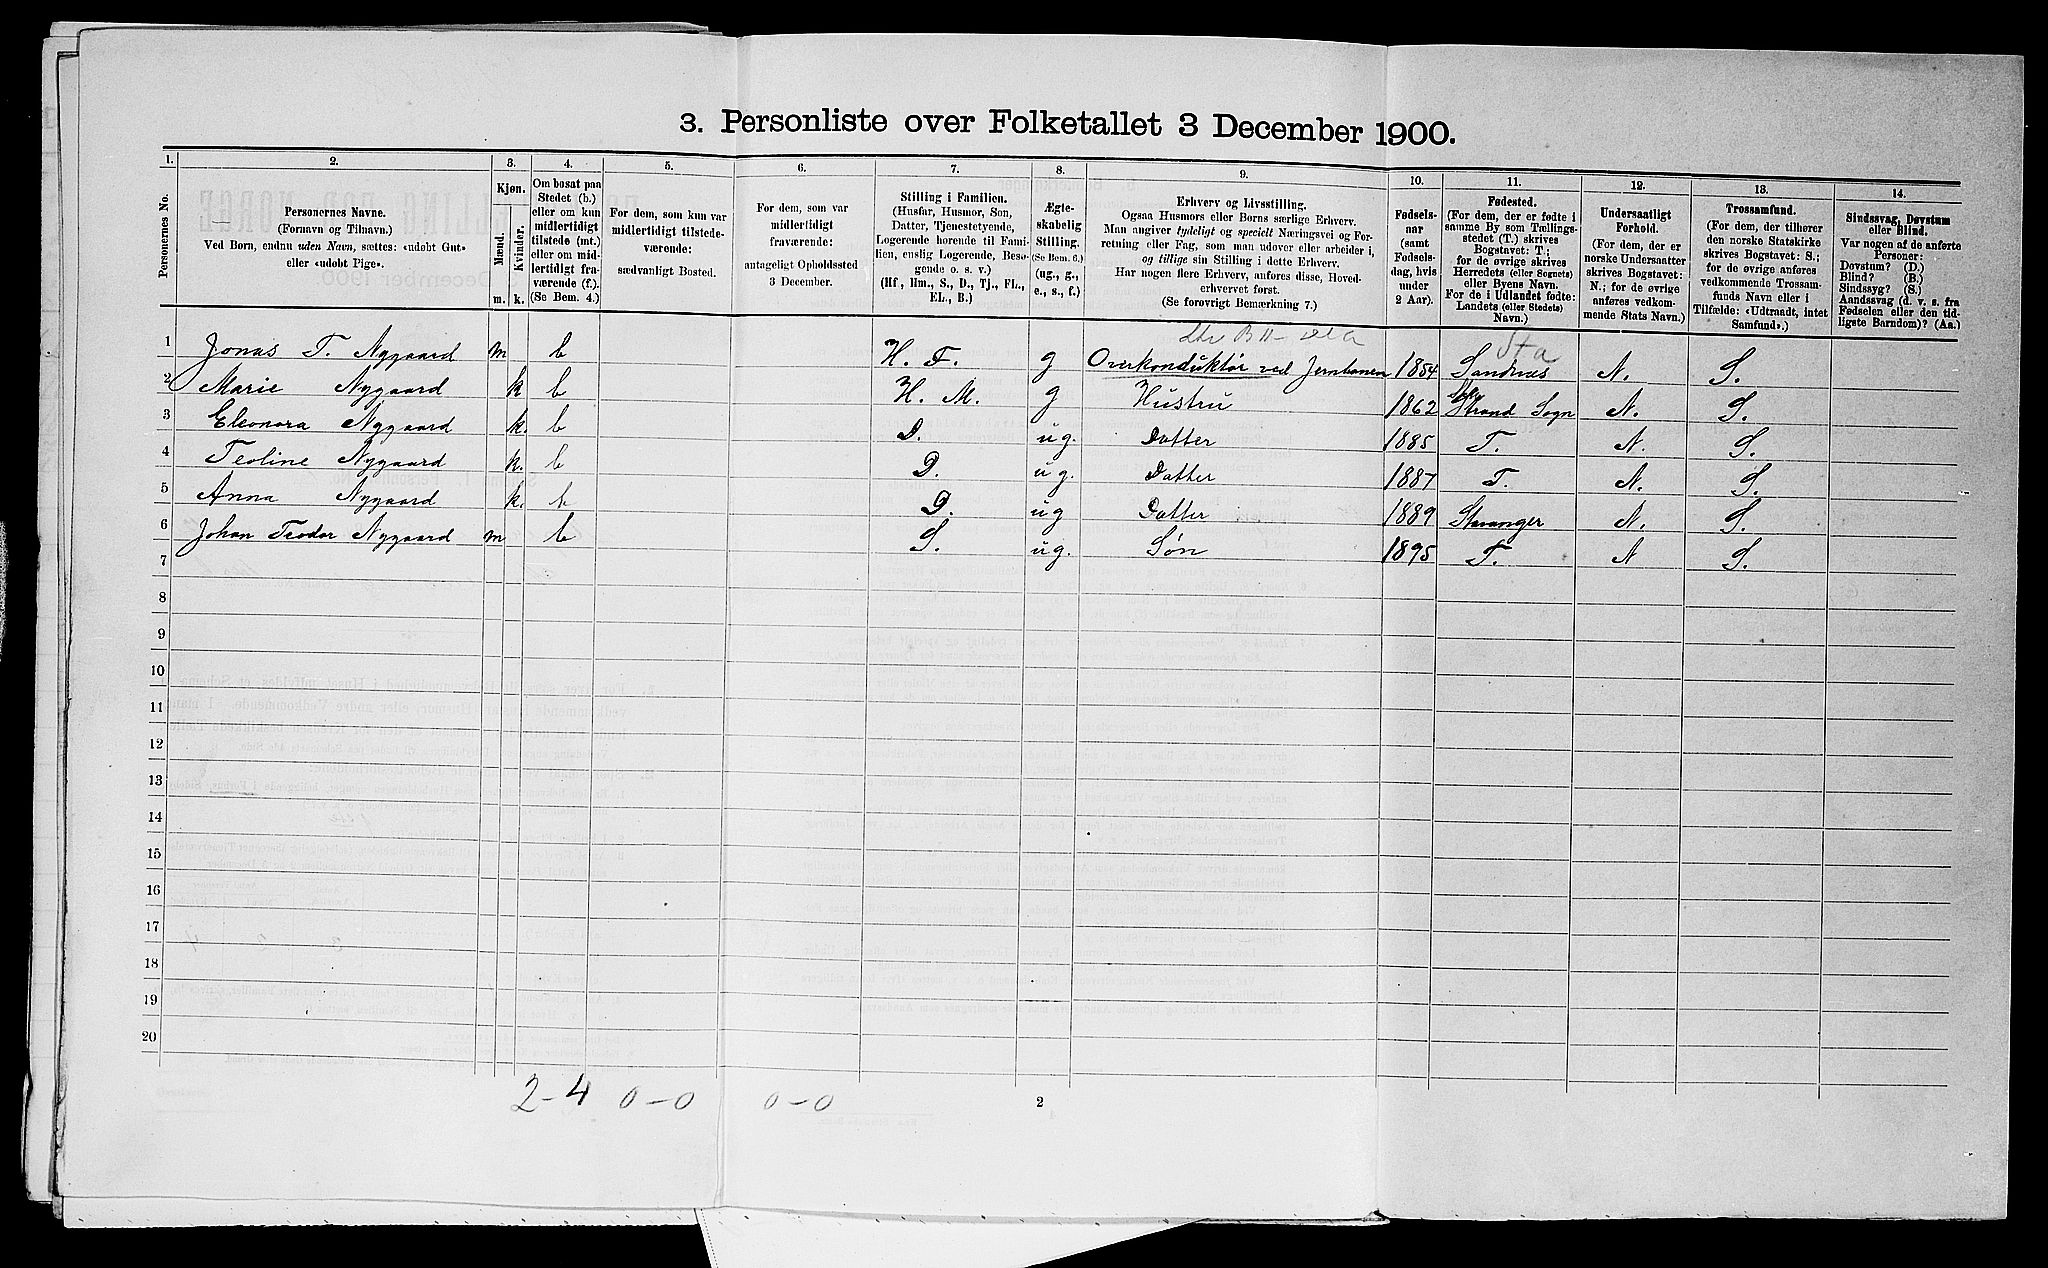 3. Personliste over Folketallet 3 December 1900.
1. 2. 3. 4. 5. 6. 7. 8. 9. 10. 11. 12. 13. 14.
Personernes No.
Personernes Navne.
(Fornavn og Tilnavn.)
Ved Børn, endnu uden Navn, sættes: «udøbt Gut»
eller «udøbt Pige».
Kjøn.
Mænd.
Kvinder.
m. k.
Om bosat paa
Stedet (b.)
eller om kun
midlertidigt
tilstede (mt.)
eller om mid-
lertidigt fra-
værende (f.).
(Se Bem. 4.)
For dem, som kun var
midlertidigt tilstede-
værende:
sædvanligt Bosted.
For dem, som var
midlertidigt
fraværende:
antageligt Opholdssted
3 December.
Stilling i Familien.
(Husfar, Husmor, Søn,
Datter, Tjenestetyende,
Logerende hørende til Fami-
lien, enslig Logerende, Besø-
gende o. s. v.)
(Hf, Hm., S., D., Tj., FL.,
EL., B.)
Ægte-
skabelig
Stilling.
(Se Bem. 6.)
(ug., g.,
e., s., f.)
Erhverv og Livsstilling.
Ogsaa Husmors eller Børns særlige Erhverv.
Man angiver tydeligt og specielt Næringsvei og For-
retning eller Fag, som man udøver eller arbeider i,
og tillige sin Stilling i dette Erhverv.
Har nogen flere Erhverv, anføres disse, Hoved-
erhvervet først.
(Se forøvrigt Bemærkning 7.)
Fødsels-
aar
(samt
Fødsels-
dag, hvis
under
2 Aar).
Fødested.
(For dem, der er fødte i
samme By som Tællings-
stedet (T.) skrives
Bogstavet: T;
for de øvrige skrives
Herredets (eller Sognets)
eller Byens Navn.
For de i Udlandet fødte:
Landets (eller Stedets)
Navn.)
Undersaatligt
Forhold.
(For dem, der er
norske Undersaatter
skrives Bogstavet:
N.; for de øvrige
anføres vedkom-
mende Stats Navn.)
Trossamfund.
(For dem, der tilhører
den norske Statskirke
skrives Bogstavet: S.;
for de øvrige anføres
vedkommende Trossam-
funds Navn eller i
Tilfælde: «Udtraadt, intet
Samfund».)
Sindssvag, Døvstum
eller Blind.
Var nogen af de anførte
Personer:
Døvstum? (D.)
Blind? (B.)
Sindssyg? (S.)
Aandssvag (d. v. s. fra
Fødselen eller den tid-
ligste Barndom)? (Aa.)
Sta
1 Jonas T. Nygaard m b H. F. g Overkonduktør ved Jernbanen 1854 Sandnes N. S.
2 Marie Nygaard k b H. M. g Hustru 1862 Strand Sogn N. S.
3 Eleonora Nygaard k. b D. ug. Datter 1885 T. N. S.
4 Teoline Nygaard k. b D. ug. Datter 1887 T. N. S.
5 Anna Nygaard k. b D. ug Datter 1889 Stavanger N. S.
6 Johan Teodor Nygaard m b S. ug. Søn 1895 T. N S.
7
8
9
10
11
12
13
14
15
16
17
18
19
20
2-4 0-0 0-0
2